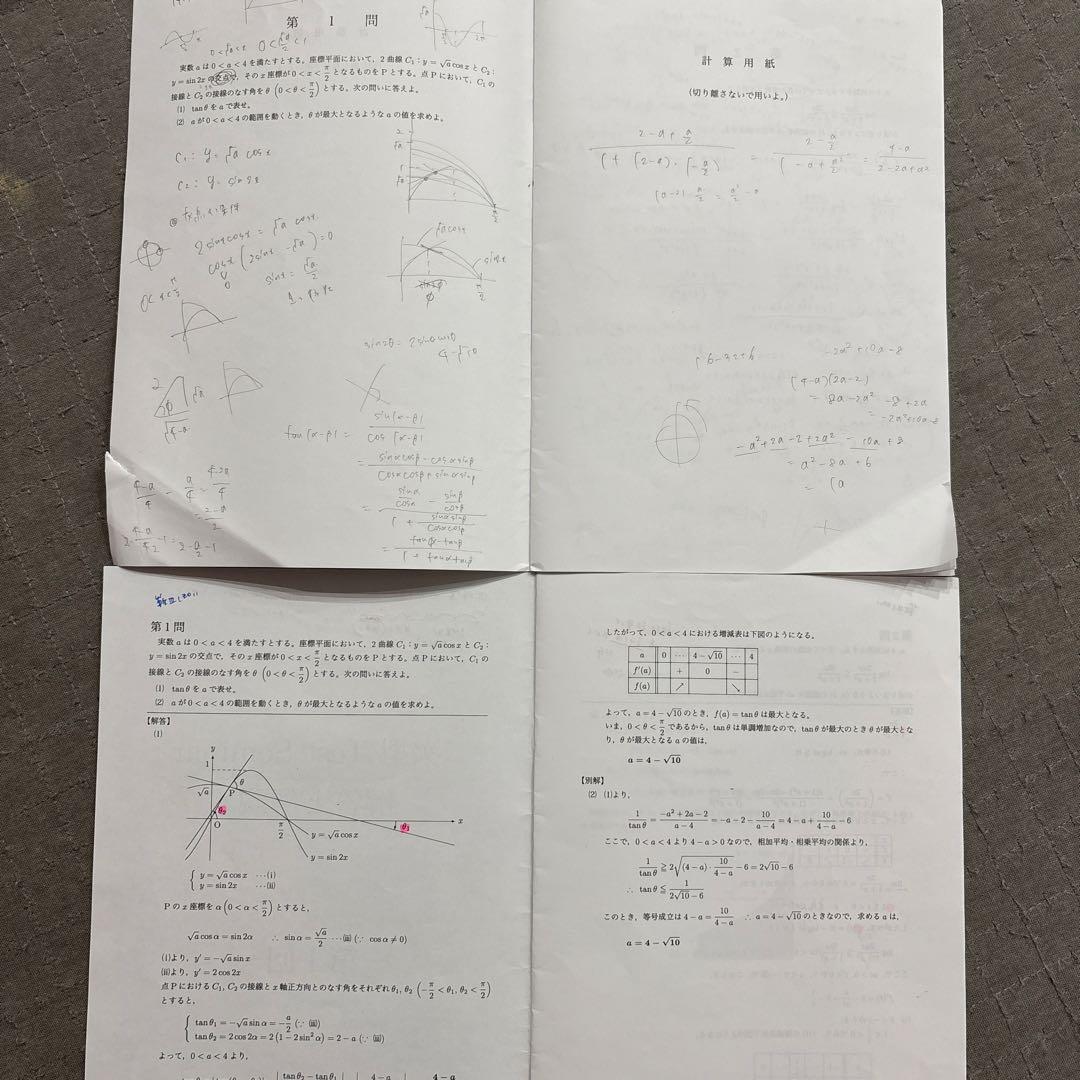 第 1 問
0 < √a < 2
実数 a は 0 < a < 4 を満たすとする。座標平面において，2 曲線 C₁ : y = √a cos x と C₂ :
y = sin 2x の交点で，その x 座標が 0 < x < π/2 となるものを P とする。点 P において，C₁ の
接線と C₂ の接線のなす角を θ (0 < θ < π/2) とする。次の問いに答えよ。
(1) tan θ を a で表せ。
(2) a が 0 < a < 4 の範囲を動くとき，θ が最大となるような a の値を求めよ。
C₁ : y = √a cos x
C₂ : y = sin 2x
2 sin x cos x = √a cos x
cos x (2 sin x - √a) = 0
sin x = √a/2
√a cos x
sin 2x
π/2
φ
sin 2θ = 2 sin θ cos θ
2
√a
φ
√4-a
tan(α-β) = sin(α-β)/cos(α-β)
= (sin α cos β - cos α sin β)/(cos α cos β + sin α sin β)
= (sin α/cos α - sin β/cos β)/(1 + sin α sin β/cos α cos β)
= (tan α - tan β)/(1 + tan α tan β)
(4-a)/4 - a/4 = (4-2a)/4
= (2-a)/2
計 算 用 紙
(切り離さないで用いよ。)
(2-a+a/2)/(1+(2-a)·(-a/2)) = (2-a/2)/(1-a+a²/2) = (4-a)/(2-2a+a²)
(a-2)·a/2 = a²/2 - a
16-32+6
-2a²+10a-8
(4-a)(2a-2)
= 8a-2a²-8+2a
= -2a²+10a-8
-a²+2a-2+2a²-10a+8
= a²-8a+6
= (a
第 1 問
実数 a は 0 < a < 4 を満たすとする。座標平面において，2 曲線 C₁ : y = √a cos x と C₂ :
y = sin 2x の交点で，その x 座標が 0 < x < π/2 となるものを P とする。点 P において，C₁ の
接線と C₂ の接線のなす角を θ (0 < θ < π/2) とする。次の問いに答えよ。
(1) tan θ を a で表せ。
(2) a が 0 < a < 4 の範囲を動くとき，θ が最大となるような a の値を求めよ。
【解答】
(1)
y
1
√a
P
θ
θ₂
O
π/2
θ₁
x
y = √a cos x
y = sin 2x
y = √a cos x ⋯(i)
y = sin 2x ⋯(ii)
P の x 座標を α (0 < α < π/2) とすると，
√a cos α = sin 2α ∴ sin α = √a/2 ⋯(iii) (∵ cos α ≠ 0)
(i)より，y′ = -√a sin x
(ii)より，y′ = 2 cos 2x
点 P における C₁, C₂ の接線と x 軸正方向とのなす角をそれぞれ θ₁, θ₂ (-π/2 < θ₁, θ₂ < π/2)
とすると，
tan θ₁ = -√a sin α = -a/2 (∵ (iii))
tan θ₂ = 2 cos 2α = 2(1 - 2 sin² α) = 2 - a (∵ (iii))
よって，0 < a < 4 より，
tan θ₂ - tan θ₁
4 - a
4 - a
したがって，0 < a < 4 における増減表は下図のようになる。
a 0 ⋯ 4 - √10 ⋯ 4
f′(a) + 0 -
f(a) ↗ ↘
よって，a = 4 - √10 のとき，f(a) = tan θ は最大となる。
いま，0 < θ < π/2 であるから，tan θ は単調増加なので，tan θ が最大のとき θ が最大とな
り，θ が最大となる a の値は，
a = 4 - √10
【別解】
(2) (1)より，
1/tan θ = (-a² + 2a - 2)/(a - 4) = -a - 2 - 10/(a - 4) = 4 - a + 10/(4 - a) - 6
ここで，0 < a < 4 より 4 - a > 0 なので，相加平均・相乗平均の関係より，
1/tan θ ≧ 2√((4 - a)·10/(4 - a)) - 6 = 2√10 - 6
∴ tan θ ≦ 1/(2√10 - 6)
このとき，等号成立は 4 - a = 10/(4 - a) ∴ a = 4 - √10 のときなので，求める a は，
a = 4 - √10